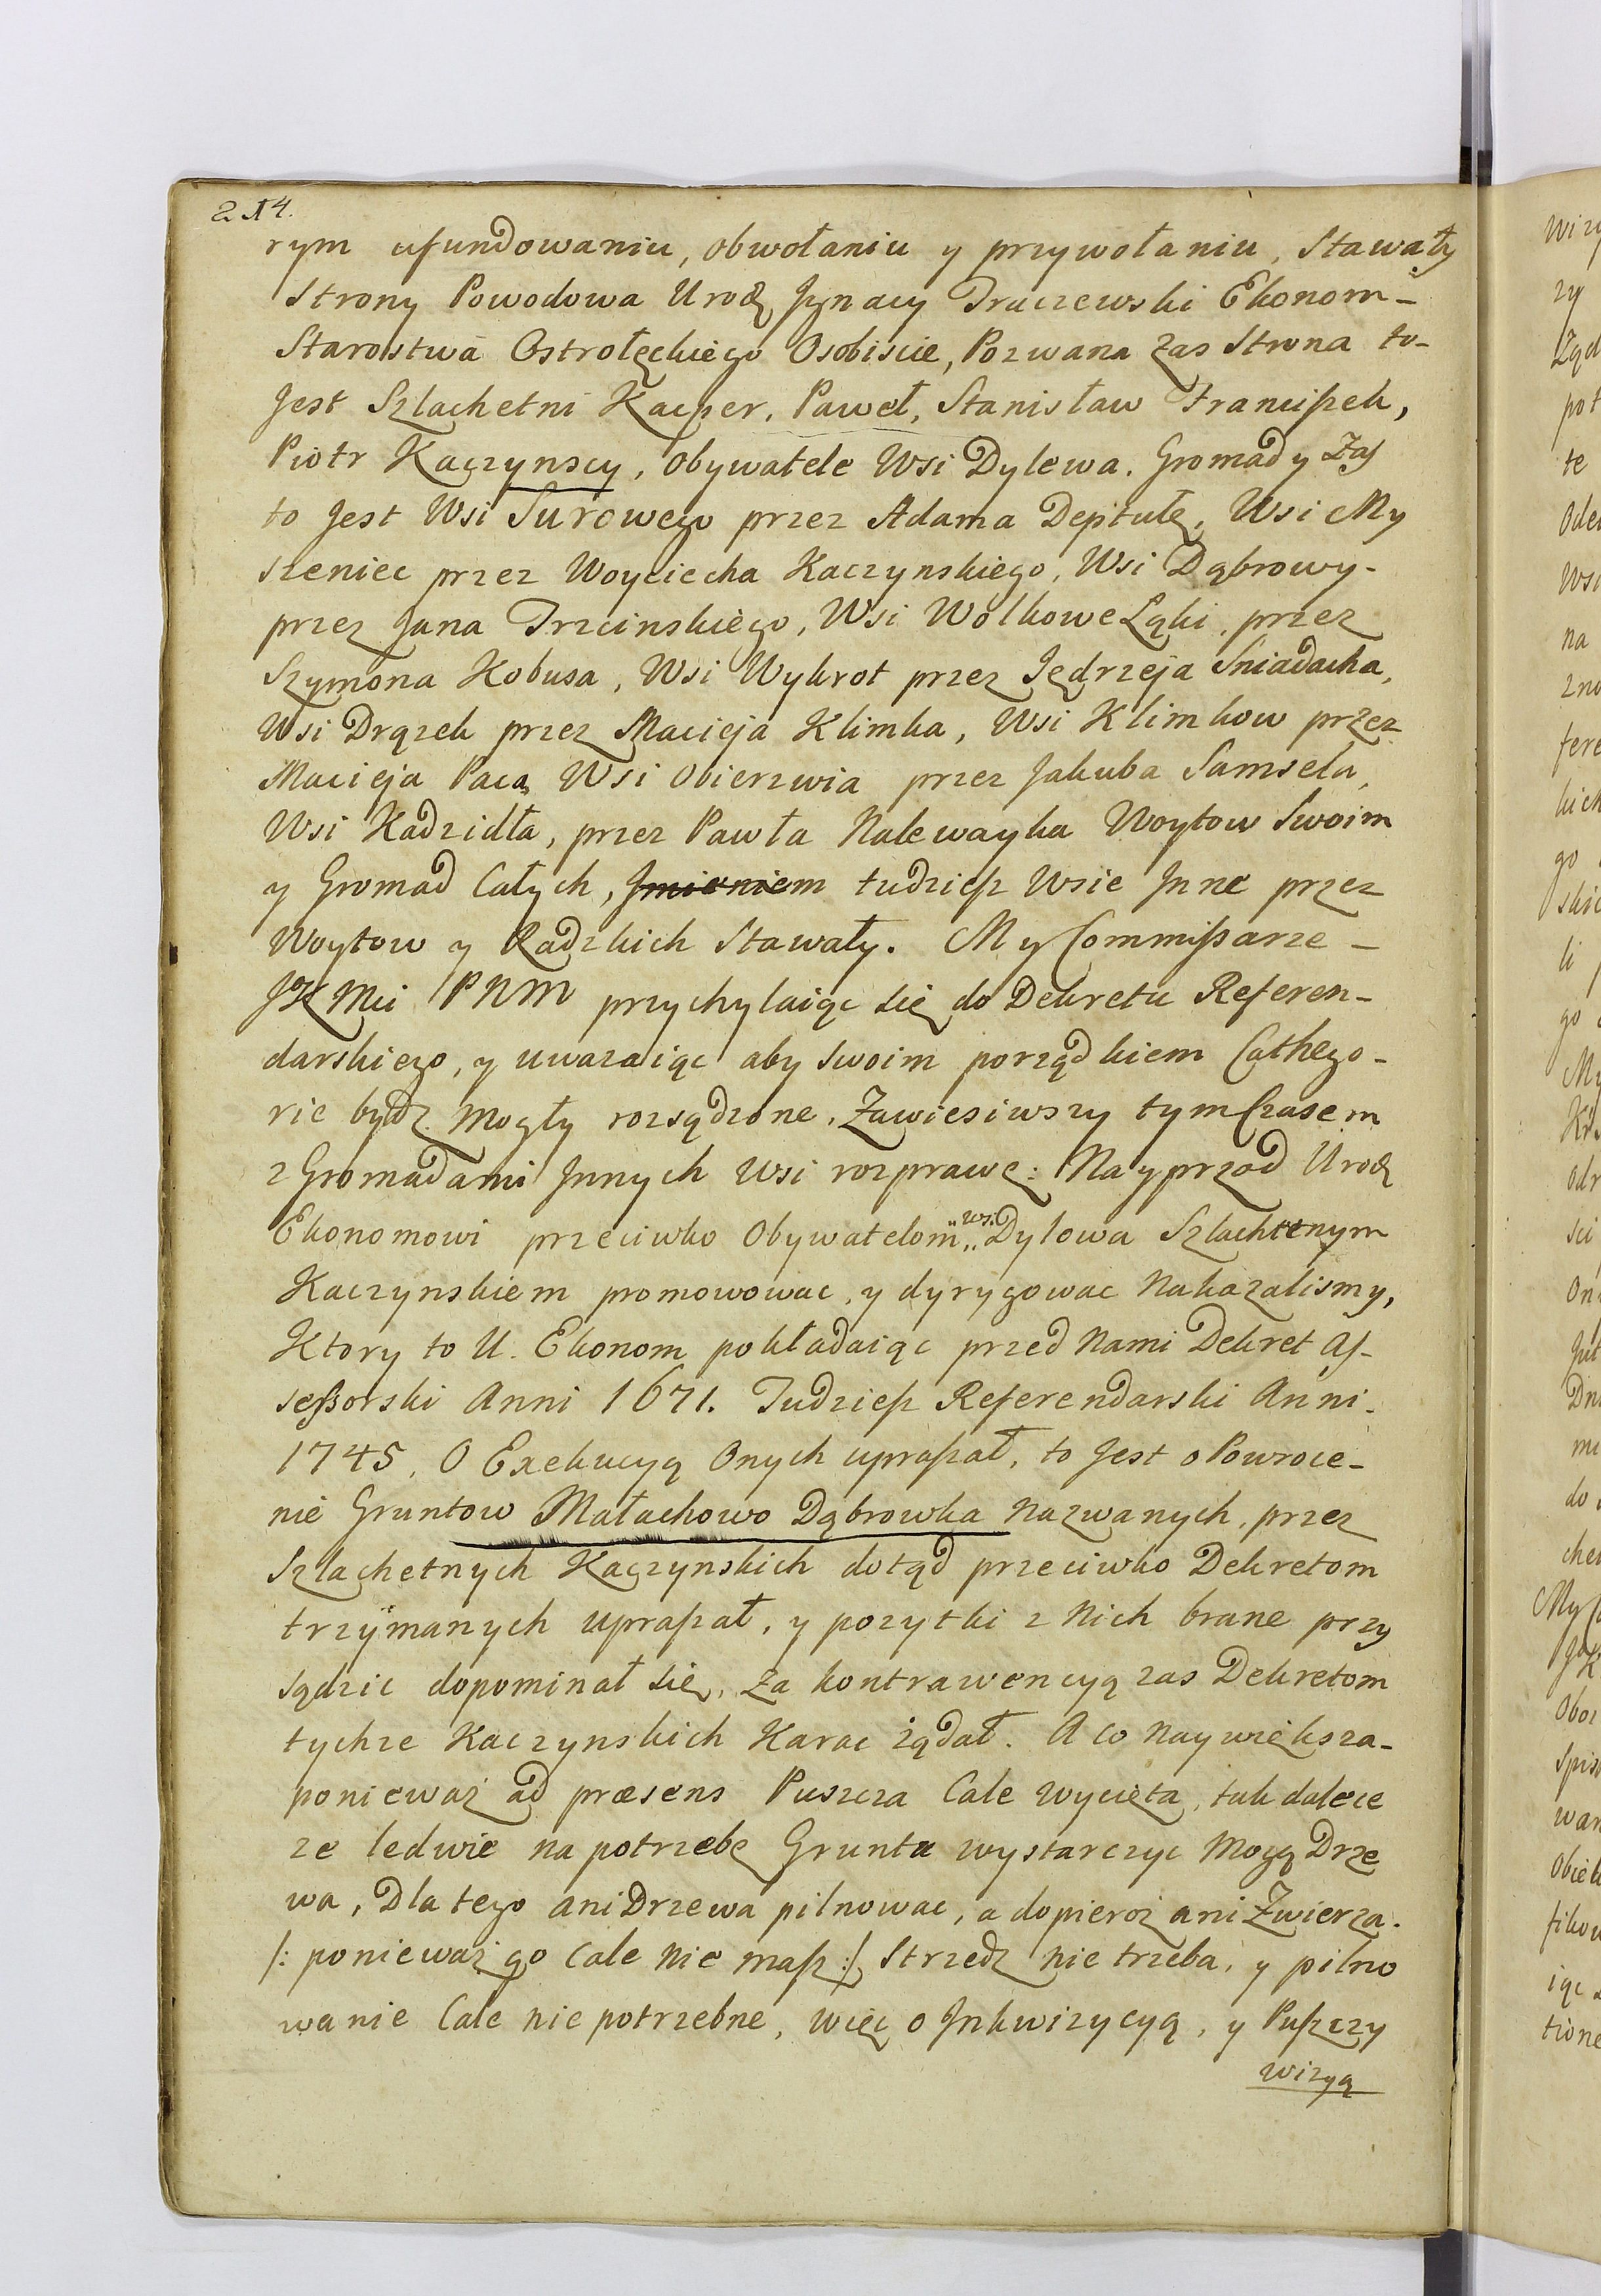 214.
rym ufundowaniu, obwołaniu y przywołaniu, Stawały
Strony Powodowa Urodz Jgnacy Traczewski Ekonom-
Starostwa Ostrołęckiego Osobiscie, Pozwana zas Strona to-
Jest Szlachetni Kacper, Paweł, Stanisław Franciszek,
Piotr Kaczynscy, Obywatele Wsi Dylewa. Gromady zas
to Jest Wsi Surowego przez Adama Deptułę, Wsi My
szeniec przez Woyciecha Kaczynskiego, Wsi Dąbrowy-
przez Jana Trzcinskiego, Wsi Wolkowe Łąki, przez
Szymona Kobusa, Wsi Wykrot przez Jędrzeja Sniadacha,
Wsi Drązek przez Macieja Klimka, Wsi Klimkow przez
Macieja Paca, Wsi Obierzwia przez Jakuba Samsela,
Wsi Kadzidła, przez Pawła Nalewayka Woytow Swoim
y Gromad Całych, Jmieniem tudziesz Wsie Jnne przez
Woytow y Radzkich Stawały. My Commissarze-
JK Mci PNM przychylaiąc się do Dekretu Referen-
darskiego, y uwazaiąc aby swoim porządkiem Cathego-
rie bydz mogły rozsądzone, Zawiesiwszy tym Czasem
z Gromadami Jnnych Wsi rozprawę: Nayprzod Urodz
Ekonomowi przeciwko Obywatelom wsi Dylowa Szlachetnym
Kaczynskiem promowowac, y dyrygowac Nakazalismy,
Ktory to U. Ekonom pokładaiąc przed Nami Dekret As-
sessorski Anni 1671. Tudziesz Referendarski Anni-
1745. O Exekucyą Onych upraszał, to Jest o Powroce-
nie Gruntow Małachowo Dąbrowka Nazwanych, przez
Szlachetnych Kaczynskich dotąd przeciwko Dekretom
trzÿmanych upraszał, y pozytki z Nich brane przy
sądzic dopominał się, Za kontrawencyą zas Dekretom
tychze Kaczynskich Karac żądał. A co Naywiększa-
ponieważ ad præsens Puszcza Cale Wycięta, tak dalece
ze ledwie na potrzebę Grunta wystarczyc Mogą Drze
wa, Dla tego ani Drzewa pilnowac, a dopieroż ani Zwierza.
/: ponieważ go Cale Nie masz :/ Strzedz nie trzeba, y pilno
wanie Cale nie potrzebne, więc o Jnkwizycyą, y Puszczy
wizyą